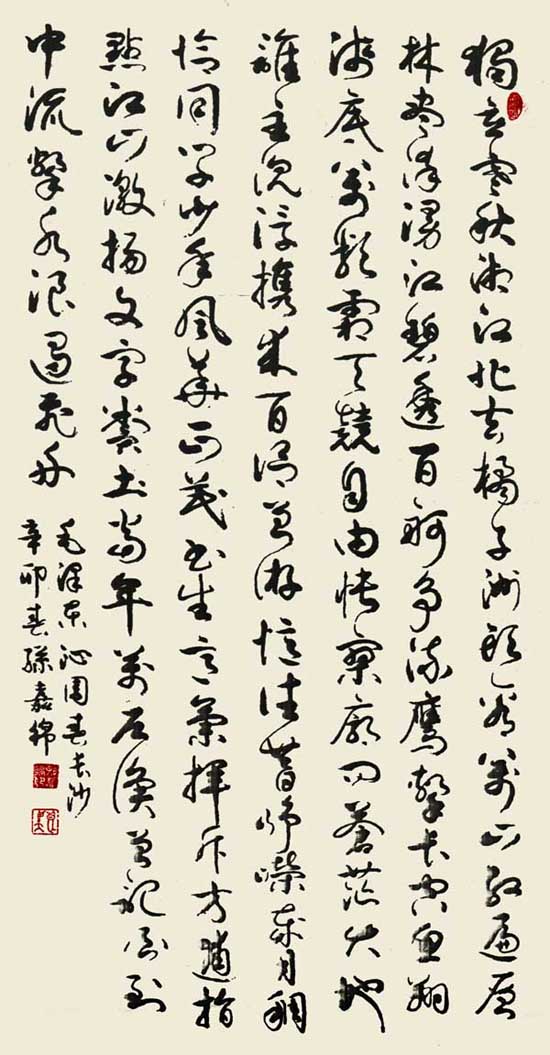 獨立寒秋湘江北去橘子洲頭看萬山紅遍層
林盡染漫江碧透百舸爭流鷹擊長空魚翔
淺底萬類霜天競自由悵寥廓問蒼茫大地
誰主沉浮攜來百侶曾游憶往昔崢嶸歲月稠
恰同學少年風華正茂書生意氣揮斥方遒指
點江山激揚文字糞土當年萬戶侯曾記否到
中流擊水浪遏飛舟
毛澤東沁園春長沙
辛卯春孫嘉